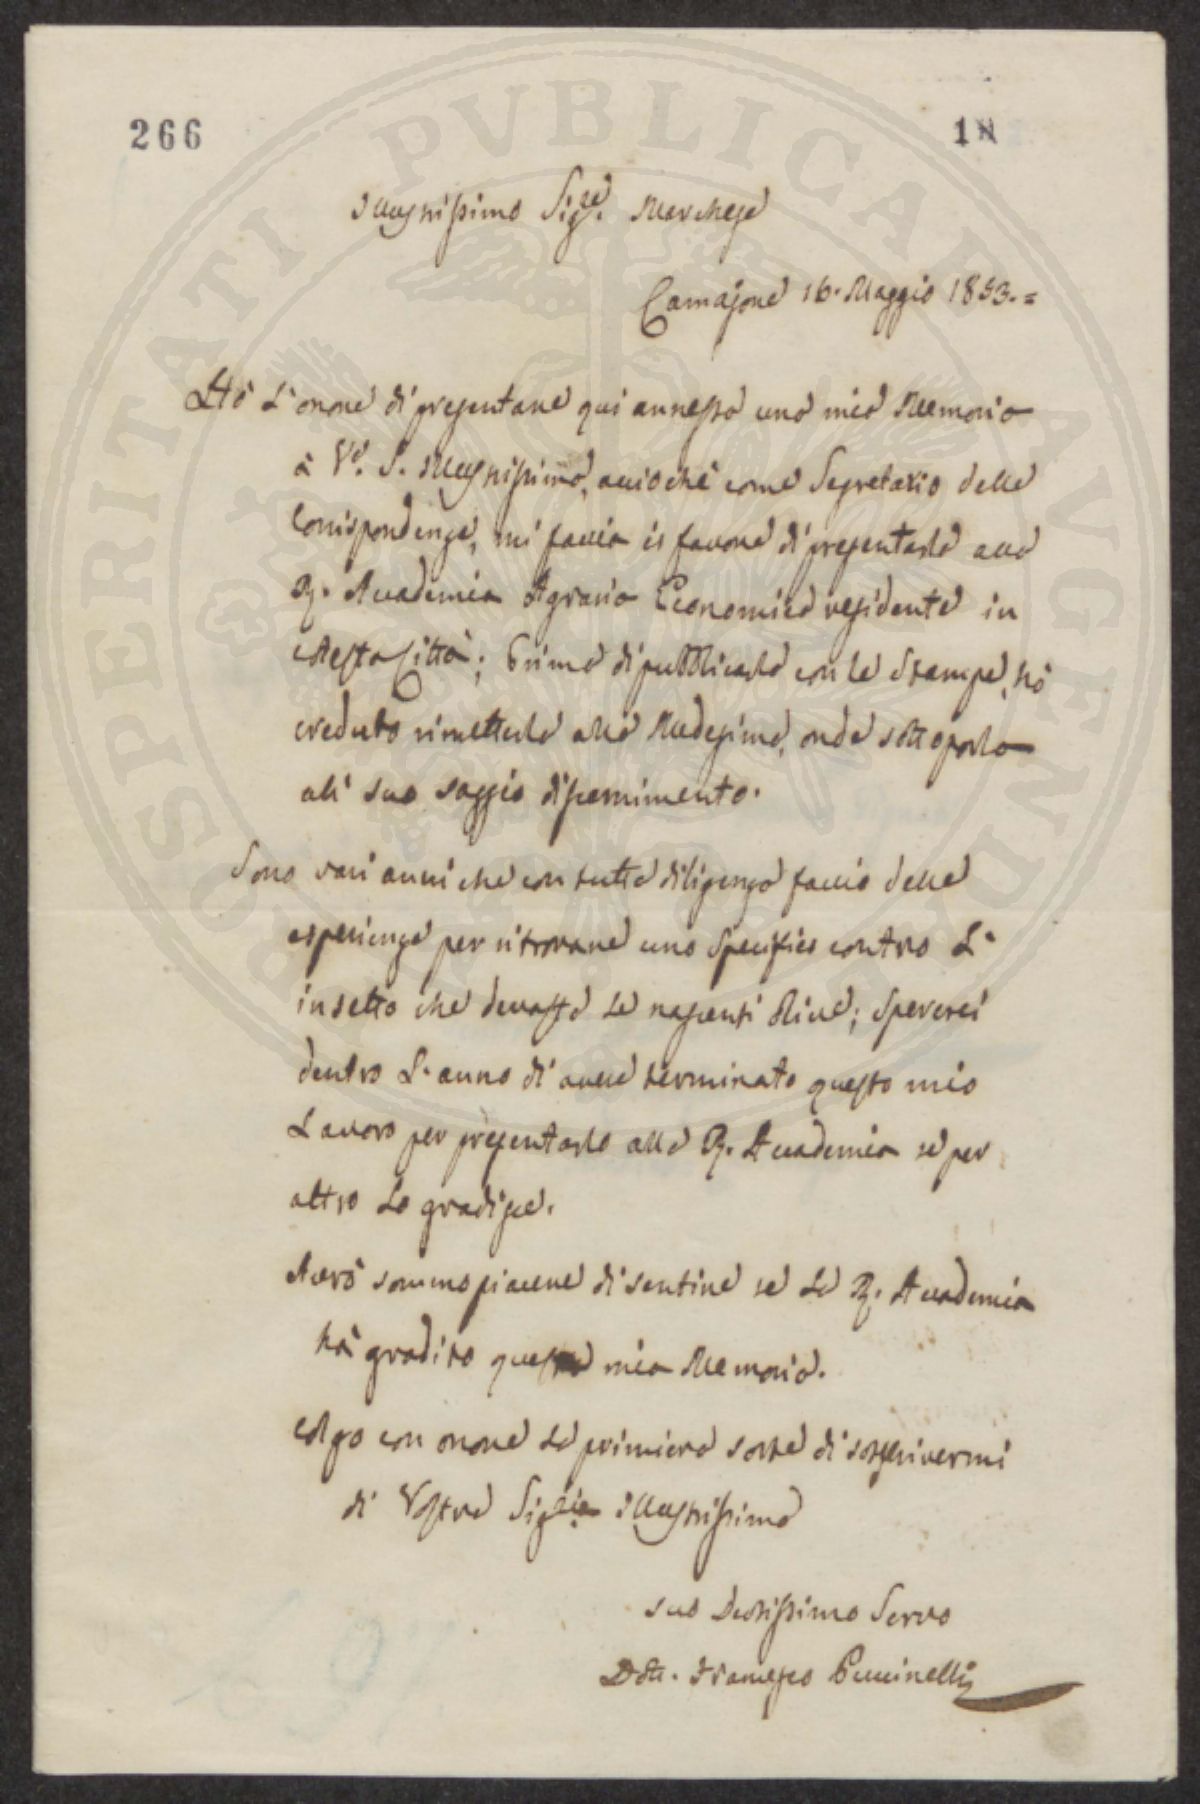 PROSPERITATI PVBLICAE AVGENDAE
266
18
Illustrissimo Sig.re Marchese
Camajore 16. Maggio 1853.=
Hò L'onore di presentare qui annessa una mia Memoria
à V.a S. Illustrissima, acciochè come Segretario delle
Corrispondenze, mi faccia il favore di presentarla alla
R. Accademia Agraria Economica residente in
codesta Città; Prima di pubblicarla con le Stampe, hò
creduto rimetterla alla Medesima, onde sottoporla
al suo saggio discernimento.
Sono vari anni che con tutta diligenza faccio delle
esperienze per ritrovare uno Specifico contro L'
insetto che devasta Le nascenti Olive; Spererei
dentro L'anno di avere terminato questo mio
Lavoro per presentarlo alla R. Accademia se per
altro Lo gradisce.
Averò sommo piacere di sentire se La R. Accademia
hà gradito questa mia Memoria.
Colgo con onore La primiera sorte di soscrivermi
di Vostra Sig.ria Illustrissima
suo Devotissimo Servo
Dott. Francesco Puccinelli